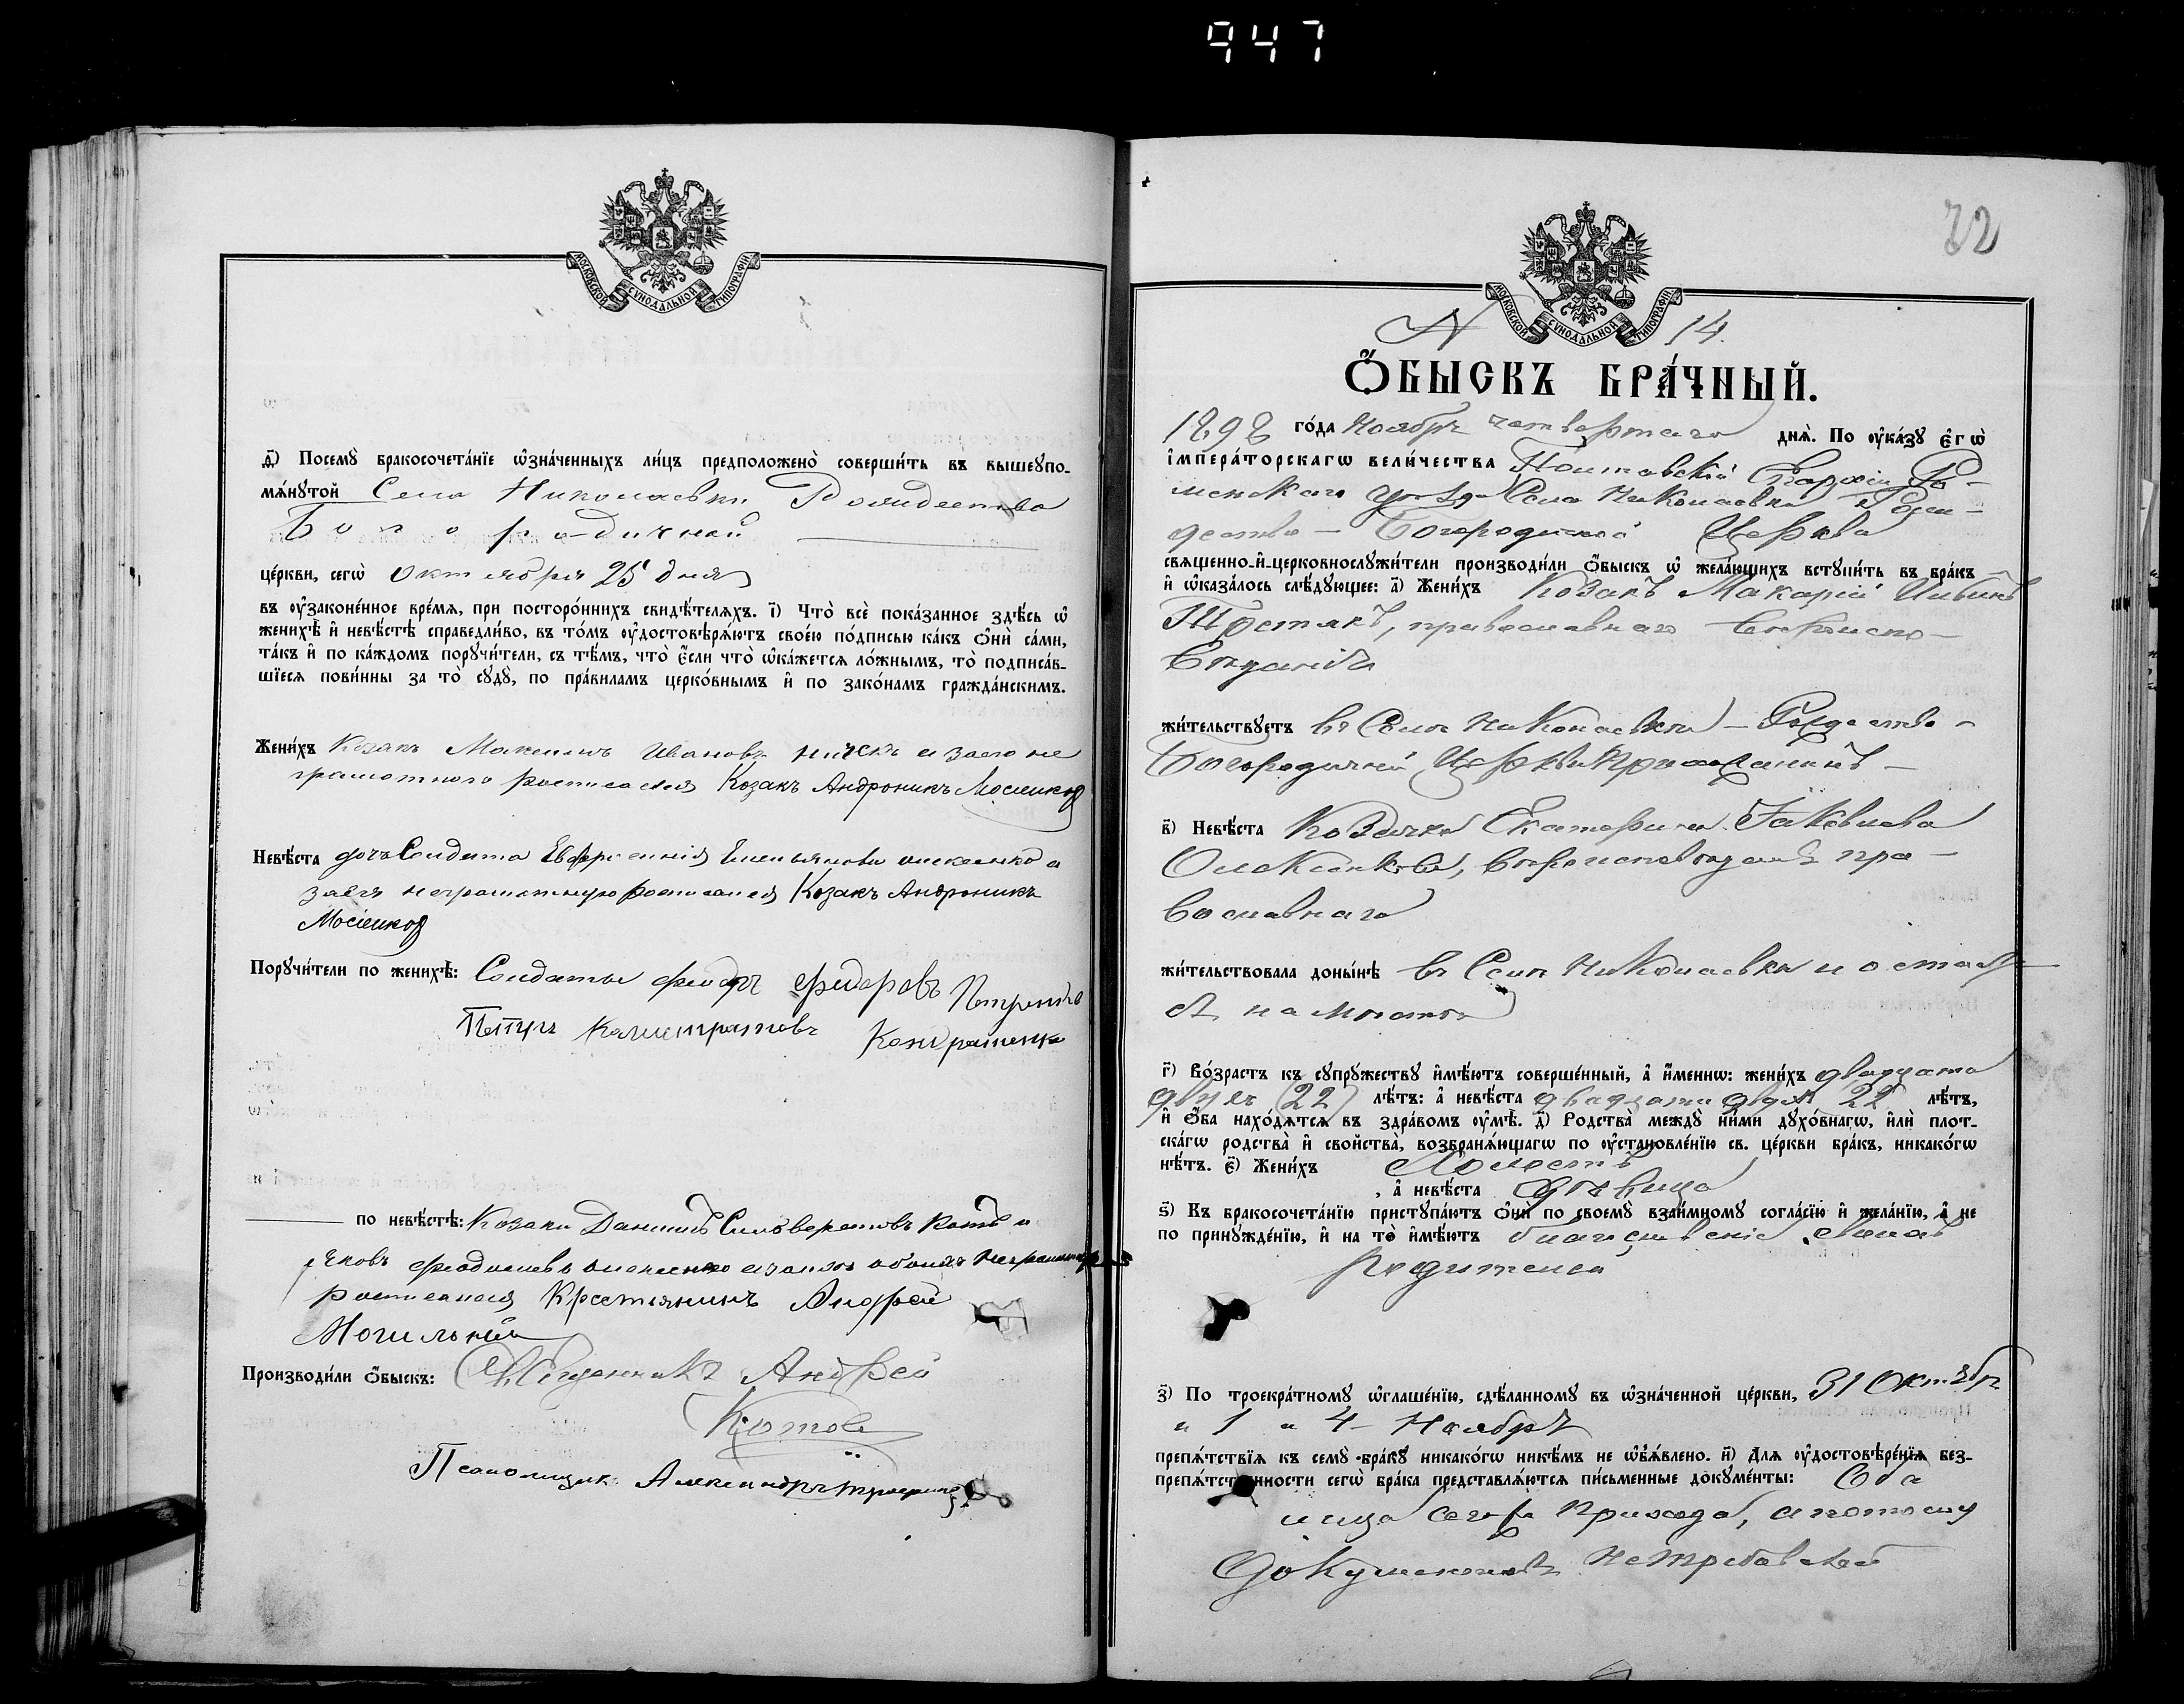 947
МОСКОВСКОЙ СУНОДАЛЬНОЙ ТИПОГРАФІИ
д҃) Посемꙋ бракосочета́нїе ѡ҆зна́ченныхъ ли́цъ предположено̀ соверши́ть въ вышеꙋпо-
мѧ́нꙋтой Села Николаевки Рождества
Богородичной
це́ркви, сегѡ̀ Октября 25 дня
въ ᲂу҆зако́ненное вре́мѧ, при посторо́ннихъ свидѣ́телѧхъ. і҃) Что̀ всѐ пока́занное здѣ́сь ѡ҆
женихѣ̀ и҆ невѣ́стѣ справедли́во, въ то́мъ ᲂу҆достовѣрѧ́ютъ свое́ю по́дписью ка́къ ѻ҆нѝ са́ми,
та́къ и҆ по ка́ждомъ порꙋчи́тели, съ тѣ́мъ, что̀ є҆́сли что̀ ѡ҆ка́жетсѧ ло́жнымъ, то̀ подписа́в-
шїесѧ пови́нны за то̀ сꙋдꙋ̀, по пра́виламъ церко́внымъ и҆ по зако́намъ гражда́нскимъ.
Жени́хъ Козакъ Иванов а за его не
грамотного росписался Козакъ Андроникъ
Невѣ́ста дочь Солдата Евфросинія а
за ея неграмотную росписался Козакъ Андроникъ
Порꙋчи́тели по женихѣ̀: Солдаты федоръ федоровъ Петренко
Петръ Калистратовъ Кондратенко
по невѣ́стѣ: Козаки Даниилъ Сильверстовъ Котъ и
Яковъ а за ихъ обоихъ неграмотныхъ
росписался Крестьянинъ Андрей
Могильній
Производи́ли ѻ҆́быскъ: Священникъ Андрей
Котов
Псаломщикъ Александръ
72
МОСКОВСКОЙ СУНОДАЛЬНОЙ ТИПОГРАФІИ
N 14.
Ѻ҆БЫСКЪ БРА́ЧНЫЙ.
1898 го́да Ноября четвертаго днѧ̀. По ᲂу҆ка́зꙋ є҆гѡ̀
і҆мпера́торскагѡ вели́чества Полтавской Епархіи Ро-
менскаго уезда Села Николаевки Рожде-
дество - Богородичной Церкви
свѧщенно-и҆-церковнослꙋжи́тели производи́ли ѻ҆́быскъ ѡ҆ жела́ющихъ встꙋпи́ть въ бра́къ
и҆ ѡ҆каза́лось слѣ́дꙋющее: а҃) Жени́хъ Козакъ Макарій
православнаго вероиспо-
веданія
жи́тельствꙋетъ въ Селе Николаевки - Рождество -
Богородичной Церкви Прихожанинъ -
в҃) Невѣ́ста Козачка Екатерина Іаковлева
вероисповеданія пра-
вославнаго
жи́тельствовала доны́нѣ въ Селе Николаевки и остает-
ся на место
г҃) Во́зрастъ къ сꙋпрꙋ́жествꙋ и҆мѣ́ютъ соверше́нный, а҆ и҆́меннѡ: жени́хъ двадцати
двухъ (22) лѣ́тъ: а҆ невѣ́ста двадцати двухъ 22 лѣ́тъ,
и҆ ѻ҆́ба нахо́дѧтсѧ въ здра́вомъ ᲂу҆мѣ̀. д҃) Родства̀ междꙋ̀ ни́ми дꙋхо́внагѡ, и҆лѝ плот-
ска́гѡ родства̀ и҆ свойства̀, возбранѧ́ющагѡ по ᲂу҆становле́нїю св. це́ркви бра́къ, никако́гѡ
нѣ́тъ. є҃) Жени́хъ Холостъ
, а҆ невѣ́ста Девица
ѕ҃) Къ бракосочета́нїю пристꙋпа́ютъ ѻ҆нѝ по своемꙋ̀ взаи́мномꙋ согла́сїю и҆ жела́нїю, а҆ не
по принꙋжде́нїю, и҆ на то̀ и҆мѣ́ютъ благословеніе своихъ
Родителей
з҃) По троекра́тномꙋ ѡ҆глаше́нїю, сдѣ́ланномꙋ въ ѡ҆зна́ченной це́ркви, 31 Октября
и 1 и 4 - Ноября
препѧ́тствїѧ къ семꙋ̀ бра́кꙋ никако́гѡ никѣ́мъ не ѡ҆б̾ѧ́влено. и҃) Длѧ ᲂу҆достовѣре́нїѧ без-
препѧ́тственности сегѡ̀ бра́ка представлѧ́ютсѧ пи́сьменные докꙋме́нты: Оба
лица сего Прихода, а потому
Документовъ не требовалось